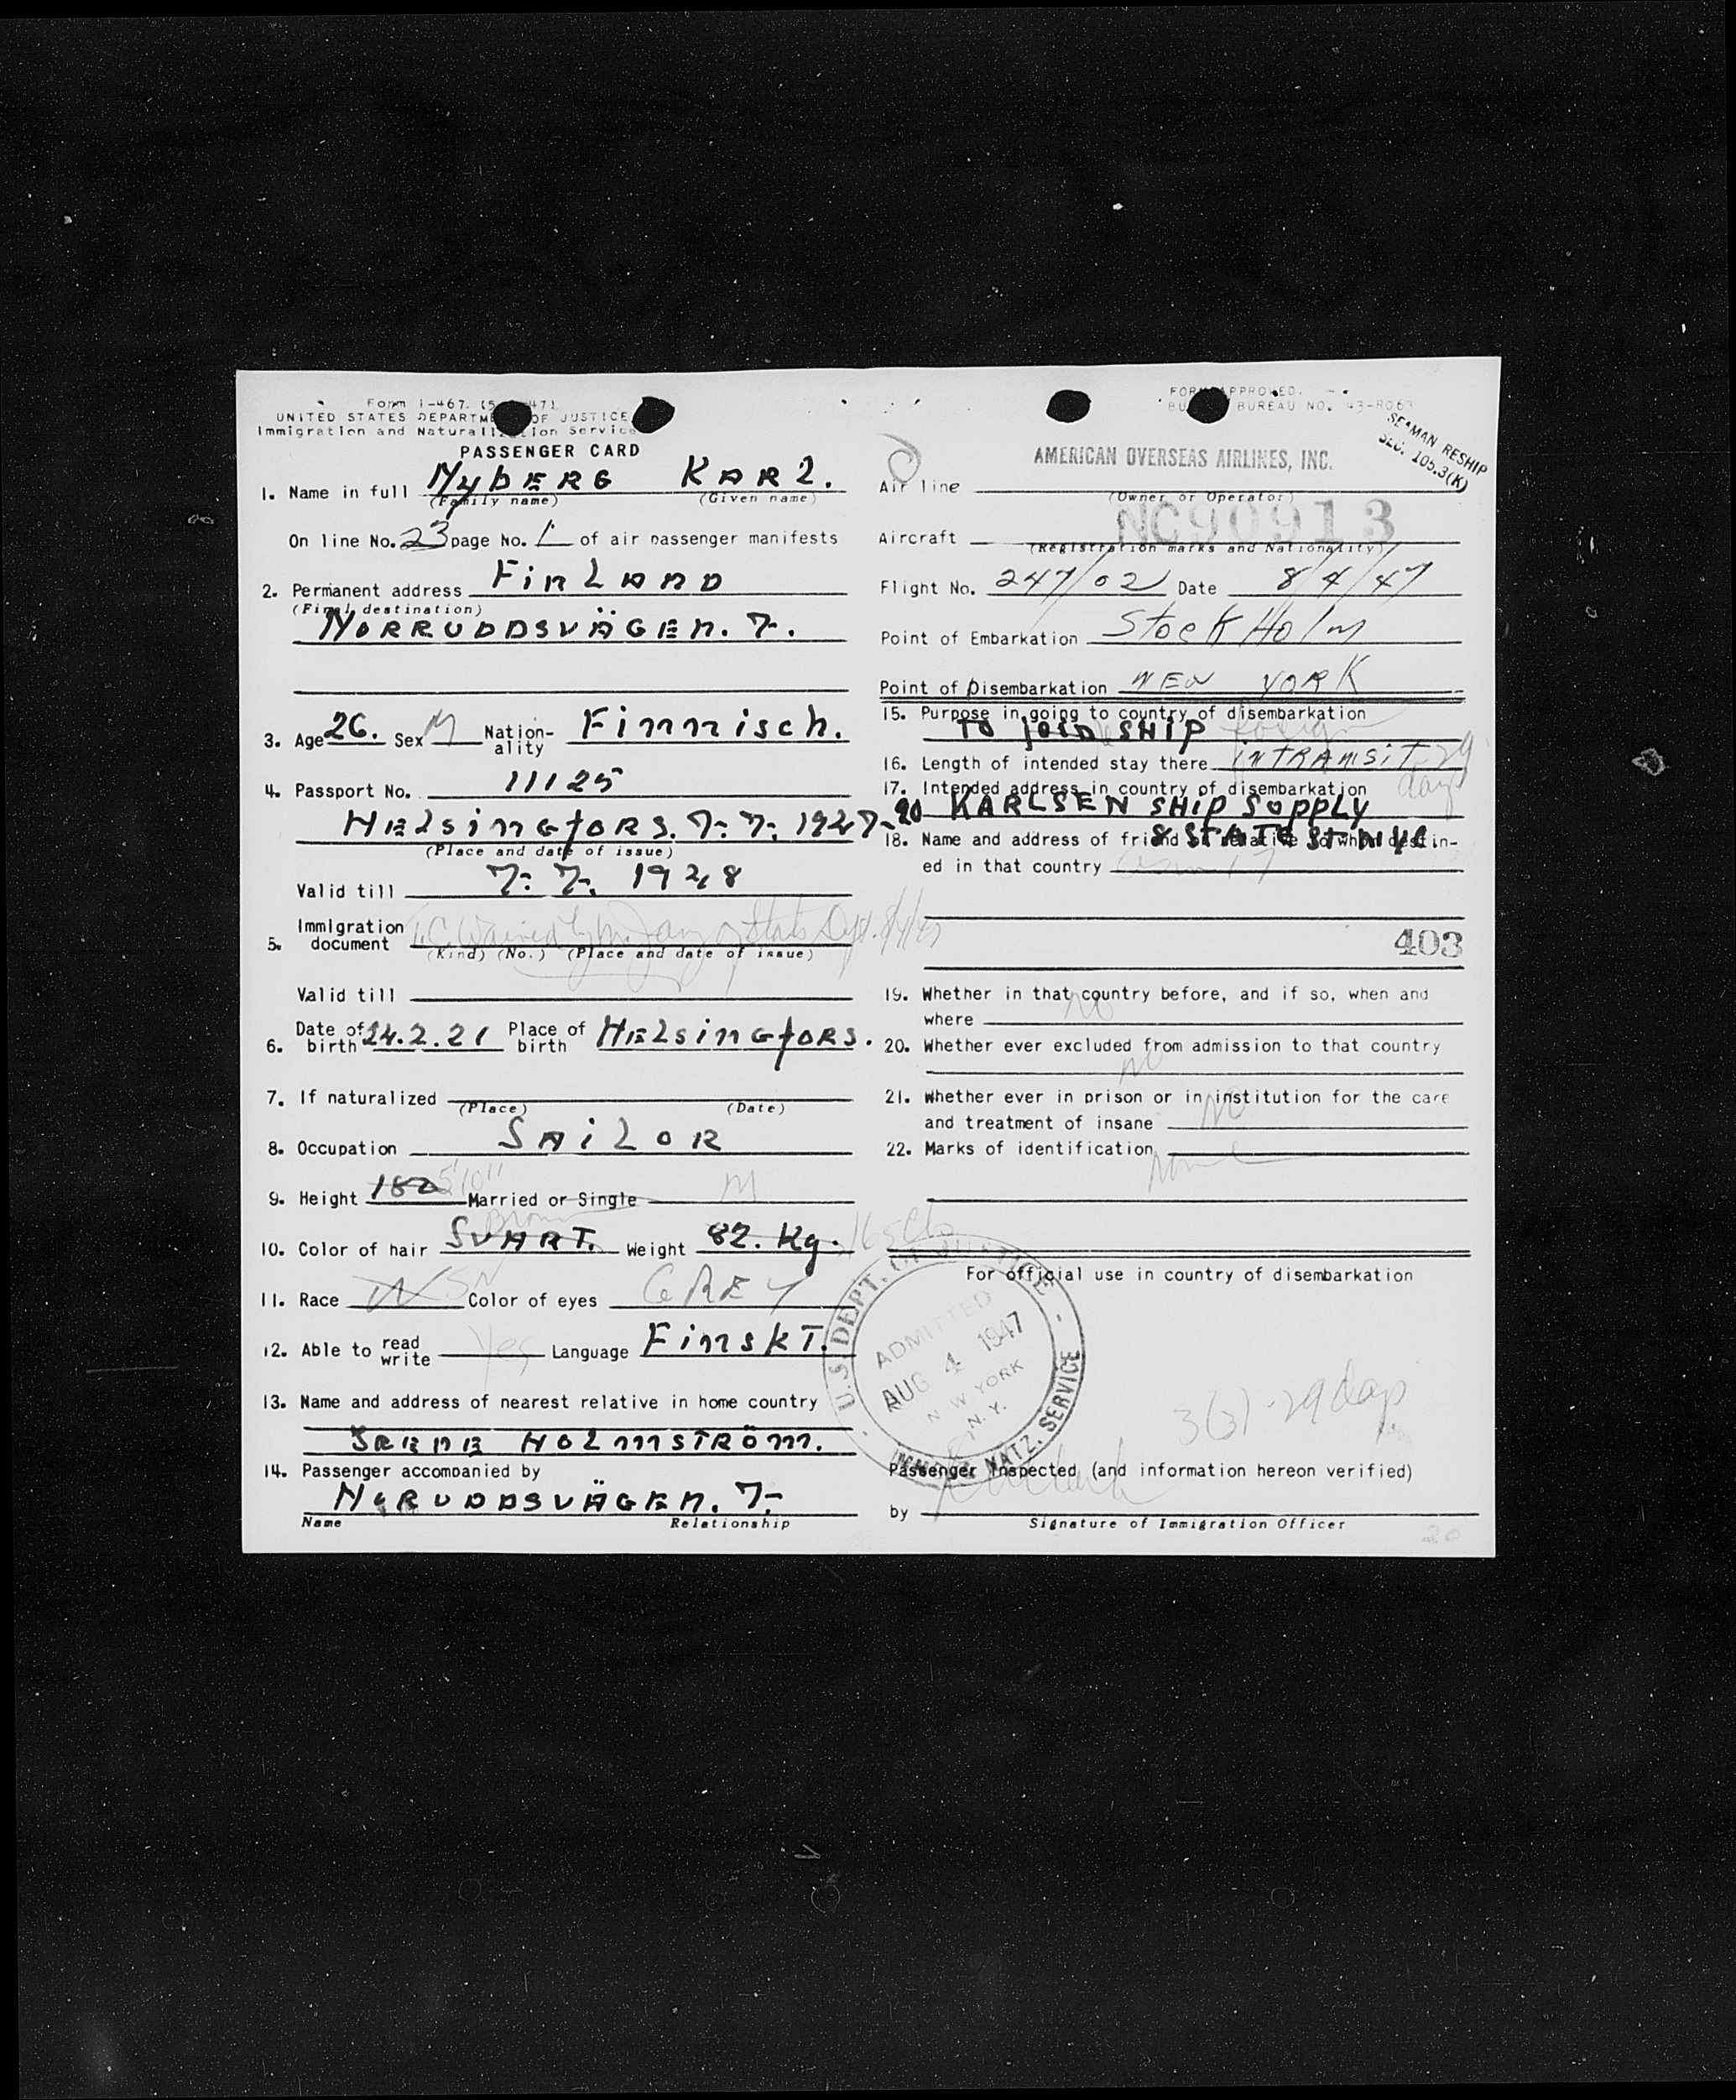 Form I-467
UNITED STATES DEPARTMENT OF JUSTICE
Immigration and Naturalization Service
PASSENGER CARD
1. Name in full NybERG KARL.
(Family name) (Given name)
On line No. 23 page No. 1 of air passenger manifests
2. Permanent address FinLAND
(Final destination)
NORRUDDSVÄGEN. 7.
3. Age 26. Sex M Nationality Finnisch.
4. Passport No. 11125
HELSingfORS. 7.7. 1947
(Place and date of issue)
Valid till 7.7. 1948
5. Immigration document
(Kind) (No.) (Place and date of issue)
Valid till
6. Date of birth 24.2.21 Place of birth HELSingfORS.
7. If naturalized
(Place) (Date)
8. Occupation SAiLOR
9. Height 182 5'10" Married or Single M
10. Color of hair SVART. Brown Weight 82. Kg.
11. Race W Color of eyes GREY
12. Able to read write Yes Language FinskT.
13. Name and address of nearest relative in home country
HOLMSTRÖM.
14. Passenger accompanied by
NORUDDSVÄGEN. 7.
Name Relationship
FORM APPROVED.
BUREAU NO. 43-R063
SEAMAN RESHIP
SEC. 105.3(K)
AMERICAN OVERSEAS AIRLINES, INC.
Air line
(Owner or Operator)
NC90913
Aircraft
(Registration marks and Nationality)
Flight No. 247/02 Date 8/4/47
Point of Embarkation StockHolm
Point of Disembarkation NEW YORK
15. Purpose in going to country of disembarkation
TO JOIN SHIP foreign
16. Length of intended stay there inTRANSiT 29 days
17. Intended address in country of disembarkation
KARLSEN SHIP SUPPLY
8 STATE ST. NYC.
18. Name and address of friend or relative to whom destined in that country
403
19. Whether in that country before, and if so, when and
where No
20. Whether ever excluded from admission to that country
No
21. Whether ever in prison or in institution for the care
and treatment of insane No
22. Marks of identification None
For official use in country of disembarkation
U.S. DEPT. OF JUSTICE
ADMITTED
AUG 4 1947
NEW YORK
N.Y.
IMMIG. & NATZ. SERVICE
3(3)-29 days
Passenger Inspected (and information hereon verified)
by
Signature of Immigration Officer